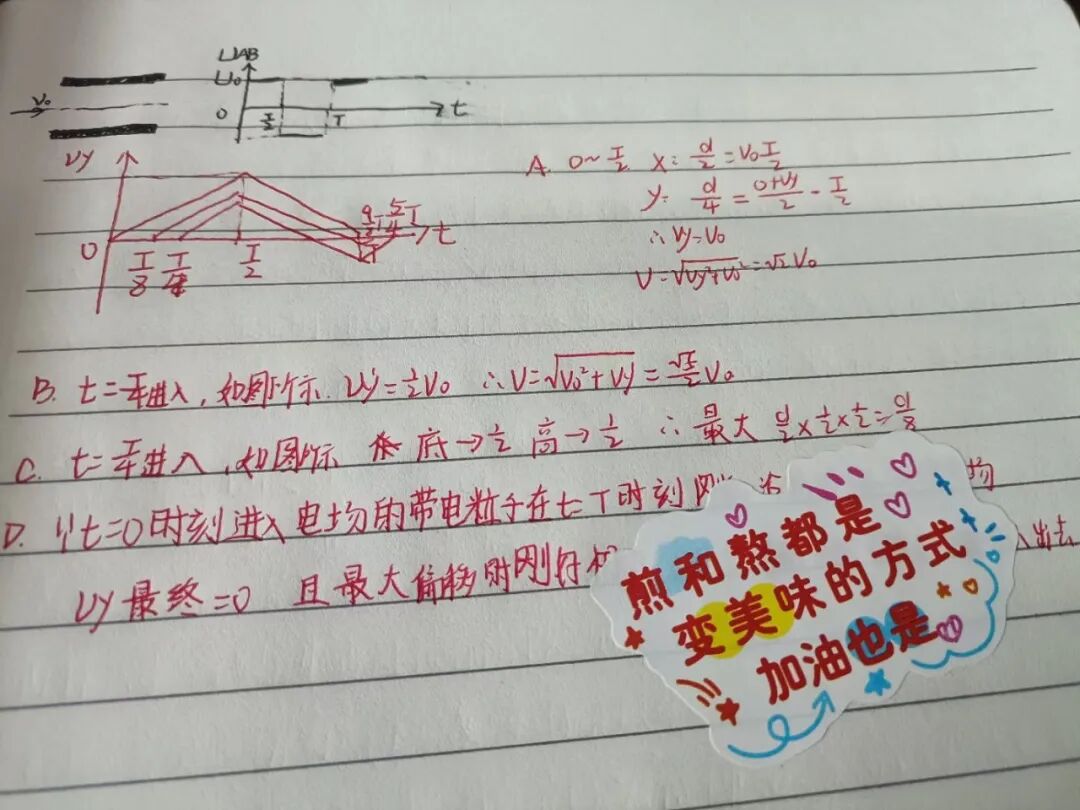 UAB
U₀
V₀
0
t
T/2
T
Vy
0
T/8
T/4
T/2
5/4 T
t
A. 0~T/2 x: d/2=V₀T/2
y: d/4=(0+Vy)/2·T/2
∴Vy=V₀
V=√(Vy²+V₀²)=√2V₀
B. t=T/4进入,如图所示. Vy=1/2V₀ ∴V=√(V₀²+Vy)=√5/2V₀
C. t=T/4进入,如图所示 底→1/2 高→1/2 ∴最大 d/2×1/2×1/2=d/8
D. t=0时刻进入电场的带电粒子在t=T时刻刚
Vy最终=0 且最大偏移时刚好 出去
煎和熬都是
变美味的方式
加油也是